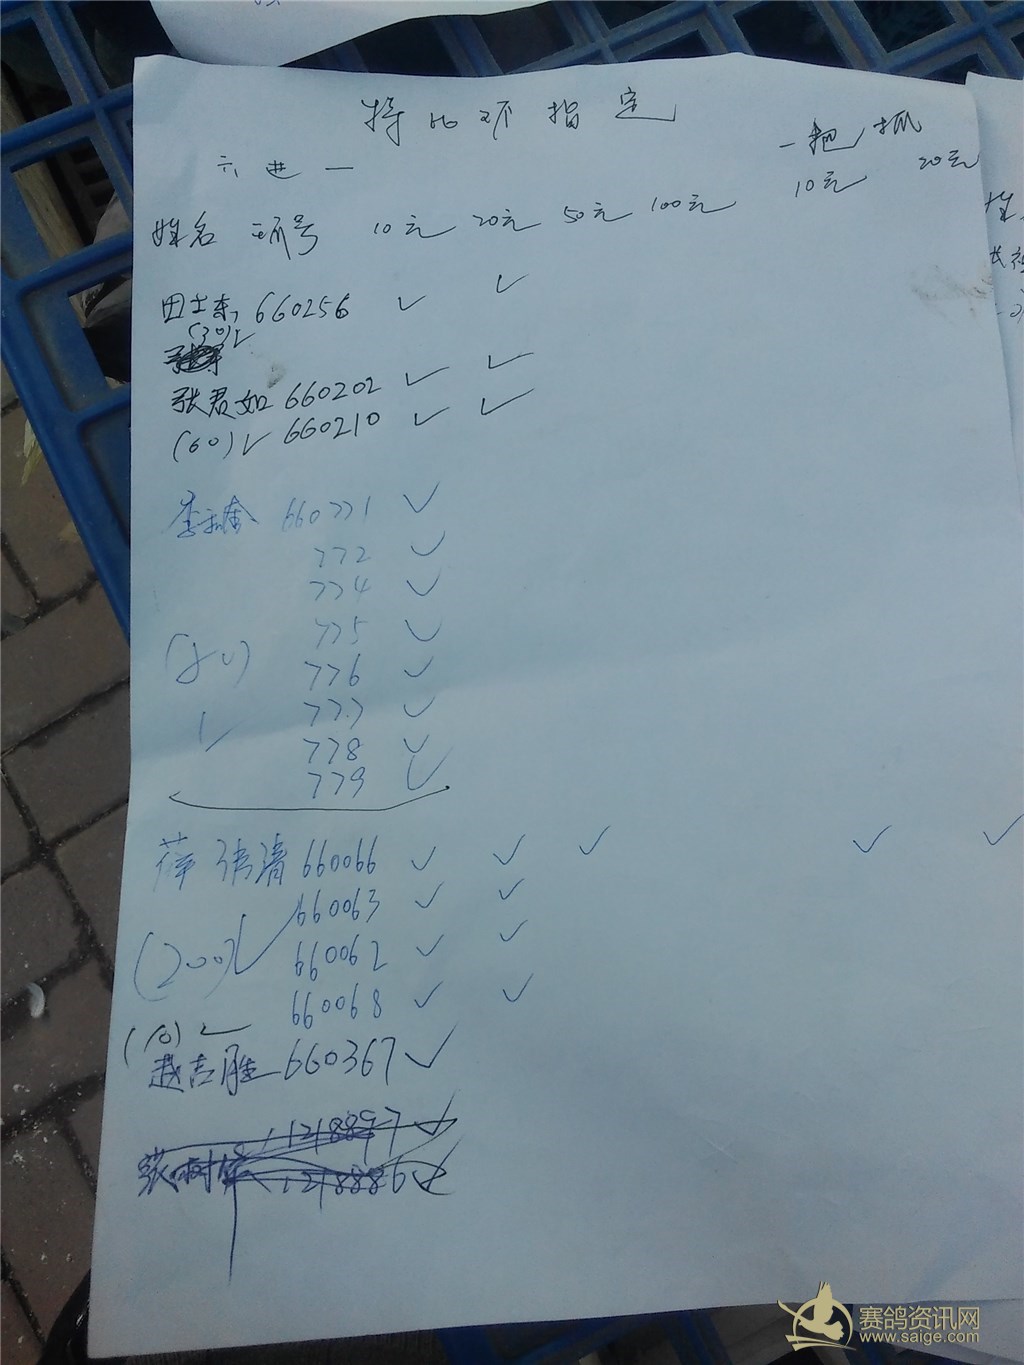 特比环指定
一把抓
六进一
10元 20元
姓名 环号 10元 20元 50元 100元
田士东 660256 ✓ ✓
(30) ✓
张君如 660202 ✓ ✓
(60) ✓ 660210 ✓ ✓
660771 ✓
772 ✓
774 ✓
775 ✓
776 ✓
(80)
777 ✓
✓
778 ✓
779 ✓
张清 660066 ✓ ✓ ✓ ✓ ✓
660063 ✓ ✓
(200) ✓ 660062 ✓ ✓
660068 ✓ ✓
(10) ✓
赵吉胜 660367 ✓
赛鸽资讯网
www.saige.com